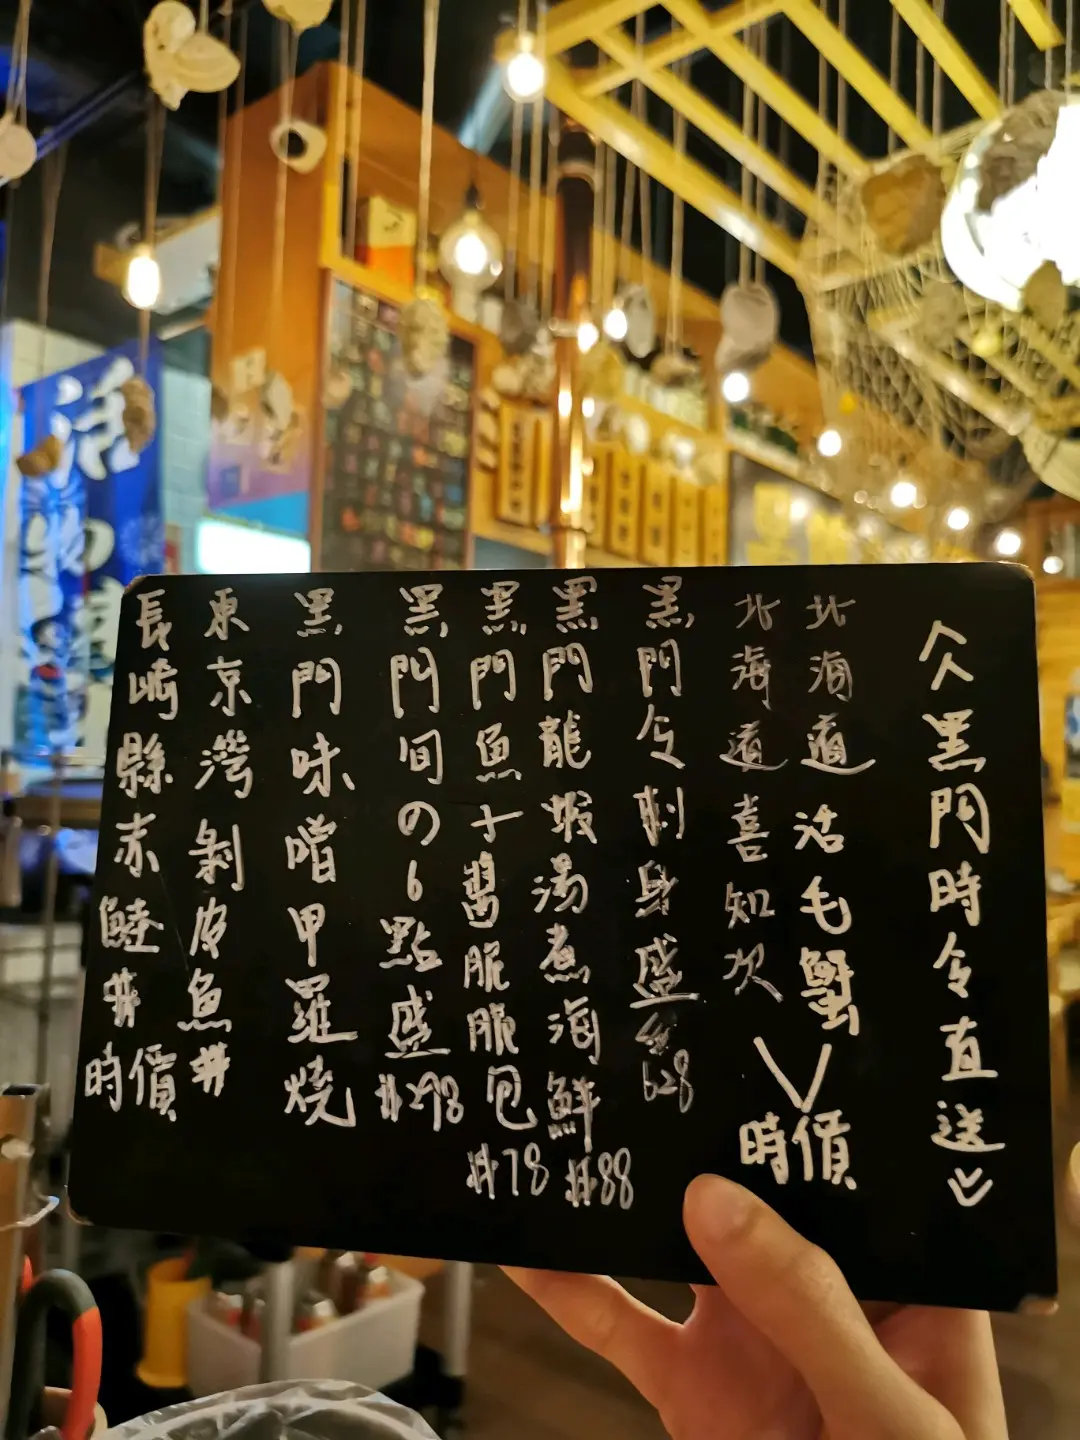 人黑門時令直送
北海道活毛蟹
北海道喜知次
時價
黑門令刺身盛 #628
黑門龍蝦湯煮海鮮 #88
黑門魚十醬脆脆包 #78
黑門旬の6點盛 #298
黑門味噌甲羅燒
東京灣剝皮魚 #
長崎縣赤鯥 #
時價
活
物